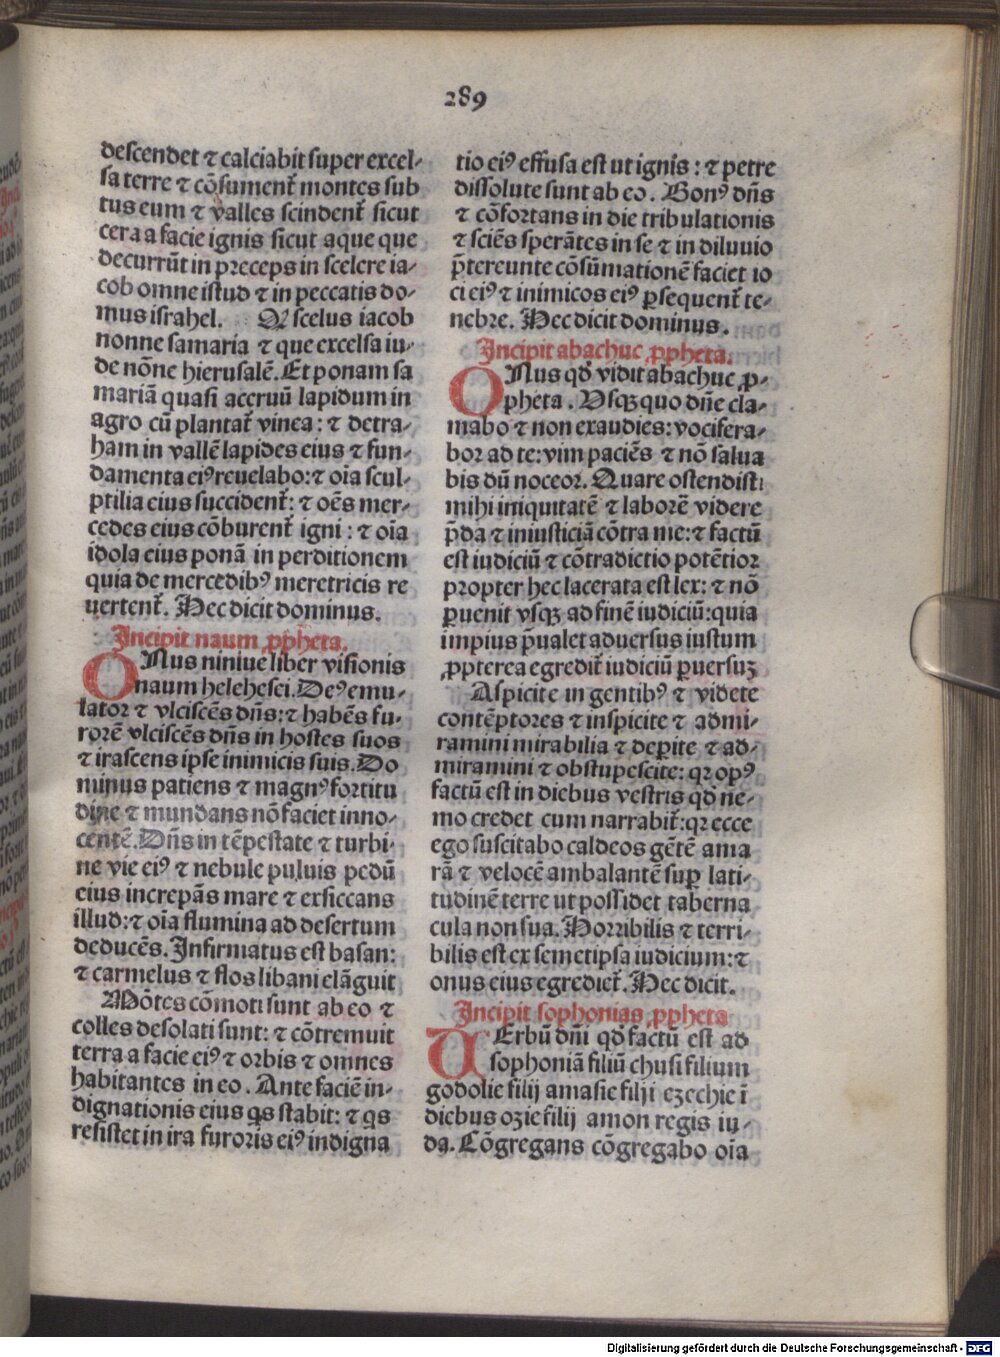 289
descendet ⁊ calciabit super excel-
sa terre ⁊ cōsument᷑ montes sub
tus eum ⁊ valles scindent᷑ sicut
cera a facie ignis sicut aque que
decurrūt in preceps in scelere ia-
cob omne istud ⁊ in peccatis do-
mus israhel. Q scelus iacob
nonne samaria ⁊ que excelsa iu-
de nōne hierusalē. Et ponam sa
mariā quasi accruū lapidum in
agro cū plantat᷑ vinea: ⁊ detra-
ham in vallē lapides eius ⁊ fun-
damenta eiꝰ reuelabo: ⁊ oīa scul-
ptilia eius succident᷑: ⁊ oēs mer-
cedes eius cōburent᷑ igni: ⁊ oīa
idola eius ponā in perditionem
quia de mercedibꝰ meretricis re
uertent᷑. Hec dicit dominus.
Incipit naum ꝓpheta.
ONus niniue liber visionis
naum helchesci. Deꝰ emu-
lator ⁊ vlciscēs dn̄s: ⁊ habēs fu-
rorē vlciscēs dn̄s in hostes suos
⁊ irascens ipse inimicis suis. Do
minus patiens ⁊ magnꝰ fortitu
dine ⁊ mundans nō faciet inno-
centē. Dn̄s in tēpestate ⁊ turbi-
ne vie eiꝰ ⁊ nebule puluis pedū
eius increpās mare ⁊ exsiccans
illud: ⁊ oīa flumina ad desertum
deducēs. Infirmatus est basan:
⁊ carmelus ⁊ flos libani elāguit
Mōtes cōmoti sunt ab eo ⁊
colles desolati sunt: ⁊ cōtremuit
terra a facie eiꝰ ⁊ orbis ⁊ omnes
habitantes in eo. Ante faciē in-
dignationis eius qͥs stabit: ⁊ qͥs
resistet in ira furoris eiꝰ indigna
tio eiꝰ effusa est ut ignis: ⁊ petre
dissolute sunt ab eo. Bonꝰ dn̄s
⁊ cōfortans in die tribulationis
⁊ sciēs sperātes in se ⁊ in diluuio
p̄tereunte cōsūmationē faciet lo
ci eiꝰ ⁊ inimicos eiꝰ ꝑsequent᷑ te-
nebre. Hec dicit dominus.
Incipit abachuc ꝓpheta.
ONus qd̄ vidit abachuc ꝓ-
pheta. Vsqꝫ quo dn̄e cla-
mabo ⁊ non exaudies: vocifera-
bor ad te: vim paciēs ⁊ nō salua
bis dū noceor. Quare ostendisti
mihi iniquitatē ⁊ laborē videre
p̄da ⁊ iniusticiā cōtra me: ⁊ factū
est iudiciū ⁊ cōtradictio potētior
propter hec lacerata est lex: ⁊ nō
ꝑuenit vsqꝫ ad finē iudiciū: quia
impius p̄ualet aduersus iustum
ꝓpterea egredit᷑ iudiciū ꝑuersuꝫ
Aspicite in gentibꝰ ⁊ videte
contēptores ⁊ inspicite ⁊ admi-
ramini mirabilia ⁊ deꝑite ⁊ ad-
miramini ⁊ obstupescite: qꝛ opꝰ
factū est in diebus vestris qd̄ ne-
mo credet cum narrabit᷑: qꝛ ecce
ego suscitabo caldeos gētē ama
rā ⁊ velocē ambalantē suꝑ lati-
tudinē terre ut possidet taberna
cula non sua. Horribilis ⁊ terri-
bilis est ex semetipsa iudicium: ⁊
onus eius egrediet᷑. Hec dicit.
Incipit sophonias ꝓpheta
VErbū dn̄i qd̄ factū est ad
sophoniā filiū chusi filium
godolie filij amasie filij ezechie ī
diebus ozie filij amon regis iu-
da. Cōgregans cōgregabo oīa
Digitalisierung gefördert durch die Deutsche Forschungsgemeinschaft - DFG